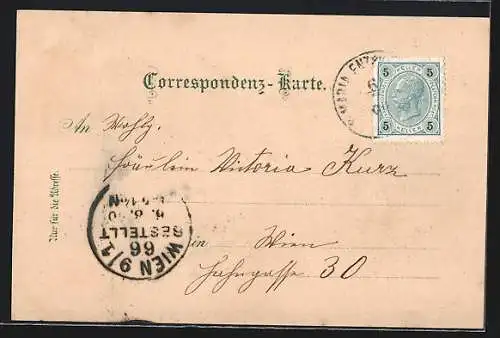 Correspondenz-Karte.
MARIA ENZE
5 5
5 5
An Wohlg.
Fräulein Victoria Kurz
in Wien
Hahngasse 30
Nur für die Adresse.
WIEN 9/1
66
BESTELLT
6. 8.